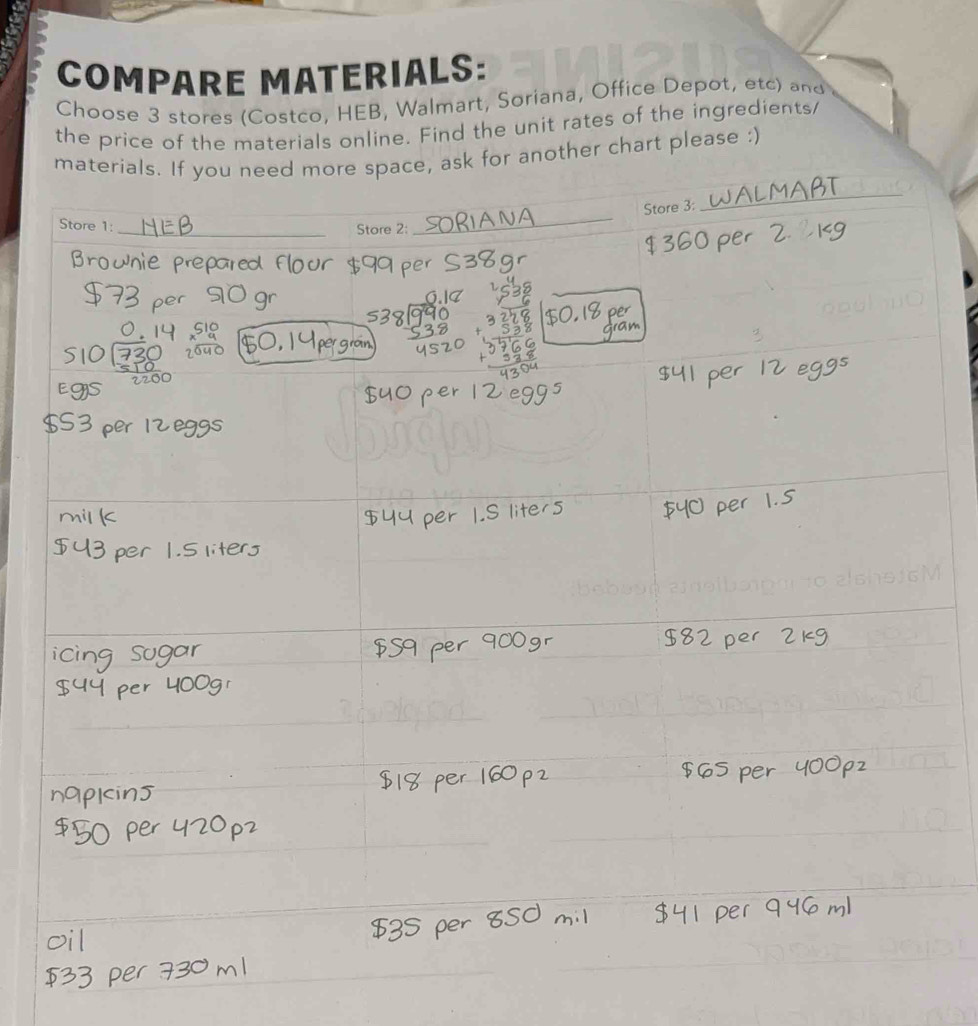 COMPARE MATERIALS:
Choose 3 stores (Costco, HEB, Walmart, Soriana, Office Depot, etc) and
the price of the materials online. Find the unit rates of the ingredients/
materials. If you need more space, ask for another chart please :)
Store 1: HEB
Store 2: SORIANA
Store 3: WALMART
Brownie prepared flour
$73 per 510 gr
0.14
510 730
510
2200
510
2040
$0.14 per gram
$99 per 538gr
0.18
538 990
538
4520
538
6
3228
+ 538
3766
+ 538
4304
$0.18 per
gram
$360 per 2. kg
Eggs
$53 per 12 eggs
$40 per 12 eggs
$41 per 12 eggs
milk
$43 per 1.5 liters
$44 per 1.5 liters
$40 per 1.5
icing sugar
$44 per 400gr
$59 per 900gr
$82 per 2kg
napkins
$50 per 420pz
$18 per 160pz
$65 per 400pz
oil
$33 per 730ml
$35 per 850 mil
$41 per 946 ml